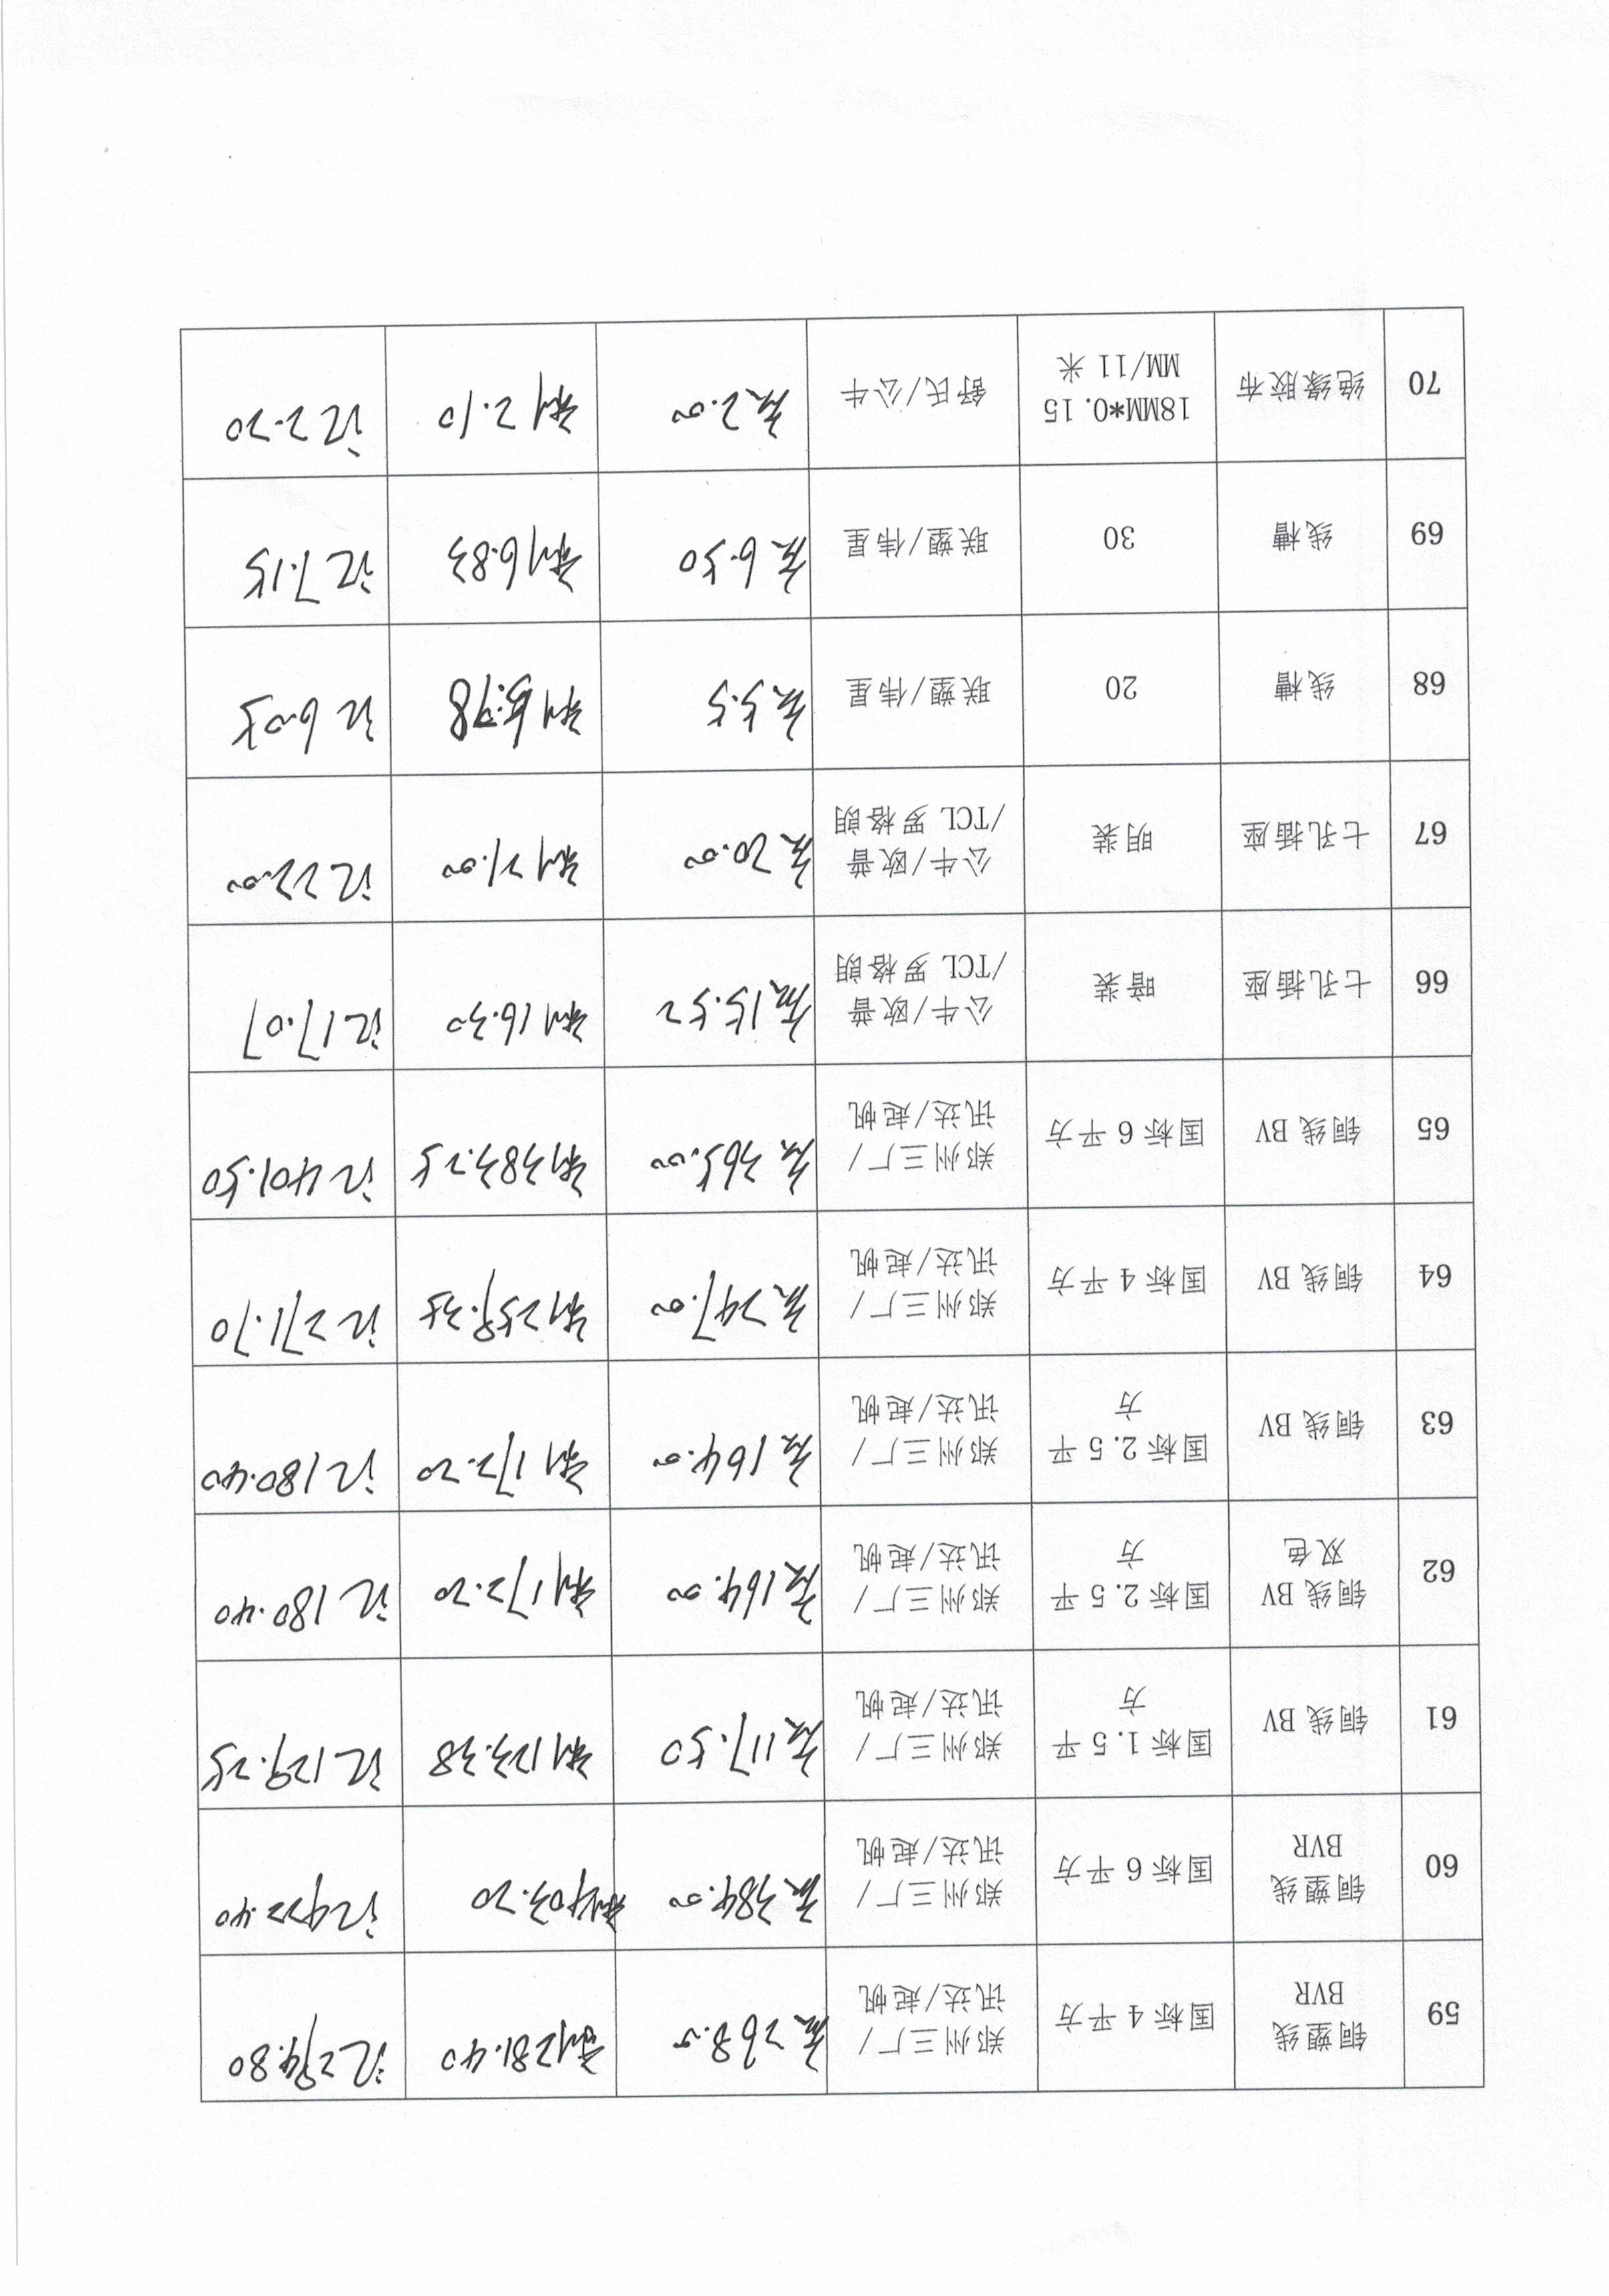 59
铜塑线
BVR
国标 4 平方
郑州三厂/
讯达/起帆
268.0
281.40
294.80
60
铜塑线
BVR
国标 6 平方
郑州三厂/
讯达/起帆
384.00
403.20
422.40
61
铜线 BV
国标 1.5 平
方
郑州三厂/
讯达/起帆
117.50
123.38
129.25
62
铜线 BV
双色
国标 2.5 平
方
郑州三厂/
讯达/起帆
164.00
172.20
180.40
63
铜线 BV
国标 2.5 平
方
郑州三厂/
讯达/起帆
164.00
172.20
180.40
64
铜线 BV
国标 4 平方
郑州三厂/
讯达/起帆
247.00
259.35
271.70
65
铜线 BV
国标 6 平方
郑州三厂/
讯达/起帆
365.00
383.25
401.50
66
七孔插座
暗装
公牛/欧普
/TCL 罗格朗
15.52
16.30
17.07
67
七孔插座
明装
公牛/欧普
/TCL 罗格朗
20.00
21.00
22.00
68
线槽
20
联塑/伟星
5.5
5.78
6.05
69
线槽
30
联塑/伟星
6.50
6.83
7.15
70
绝缘胶布
18MM*0.15
MM/11 米
舒氏/公牛
2.00
2.10
2.20